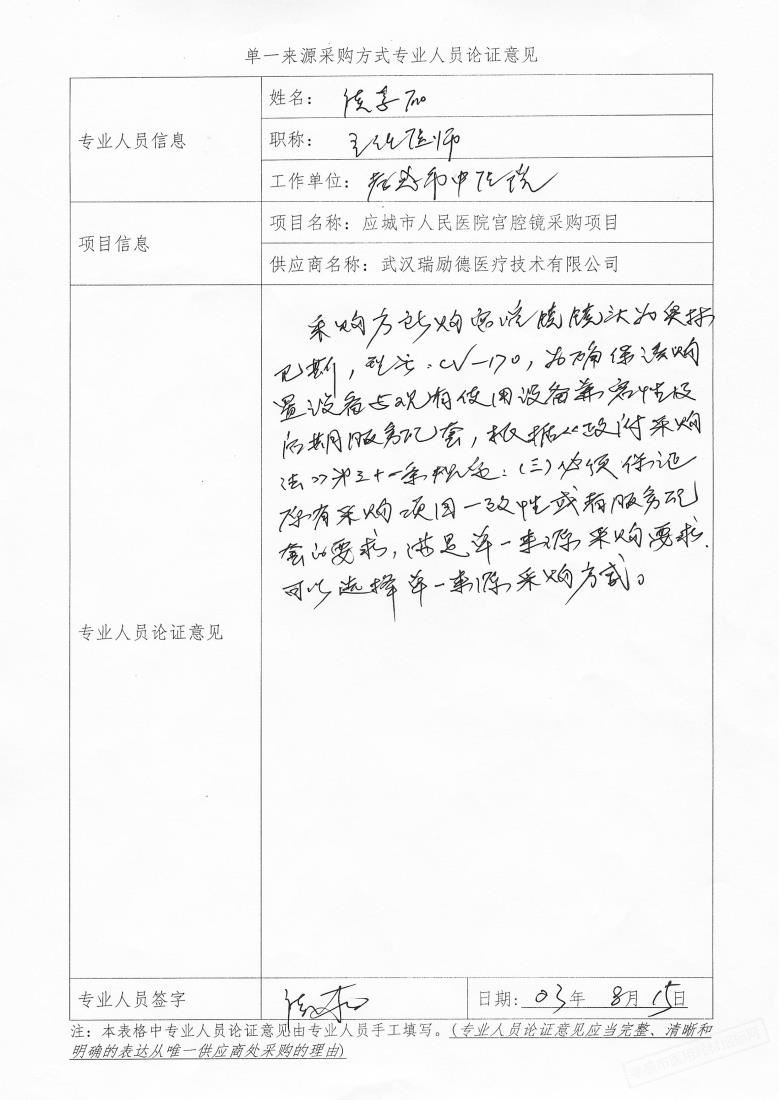 单一来源采购方式专业人员论证意见
专业人员信息
姓名：
职称：主任医师
工作单位：孝感市中医院
项目信息
项目名称：应城市人民医院宫腔镜采购项目
供应商名称：武汉瑞励德医疗技术有限公司
专业人员论证意见
采购方所购宫腔镜镜头为奥林
巴斯，型号：CV-170，为确保该购
置设备与现有使用设备兼容性及
后期服务配套，根据《政府采购
法》第三十一条规定：（三）必须保证
原有采购项目一致性或者服务配
套的要求，满足单一来源采购要求，
可以选择单一来源采购方式。
专业人员签字
日期：03年 8月15日
注：本表格中专业人员论证意见由专业人员手工填写。(专业人员论证意见应当完整、清晰和
明确的表达从唯一供应商处采购的理由)